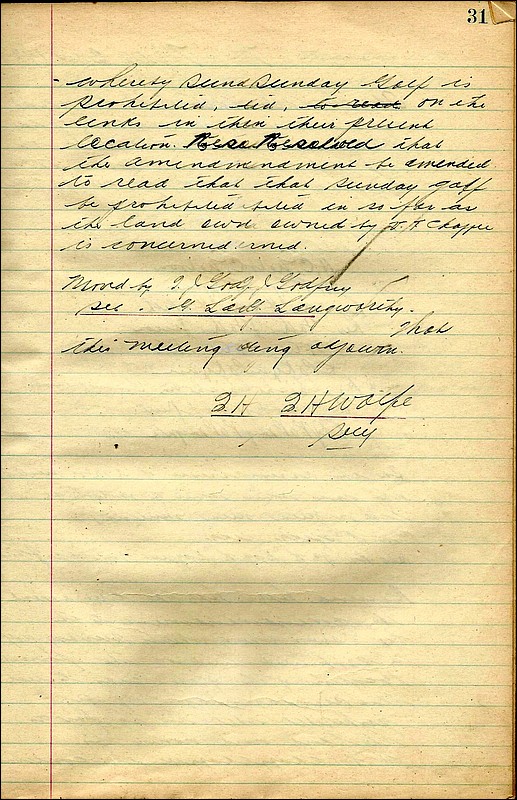 31
- whereby Sund Sunday Golf is
prohibited, ted, to read on the
links in then their present
location. Reso Resolved that
the amendmendment be amended
to read that that Sunday golf
be prohibited bited in so far as
the land own owned by
is concerned erned.
Moved by J. J God J Godfrey
sec. G. Lan G. Langworthy.
That
this meeting ting adjourn.
G H G H Wolfe
Secy